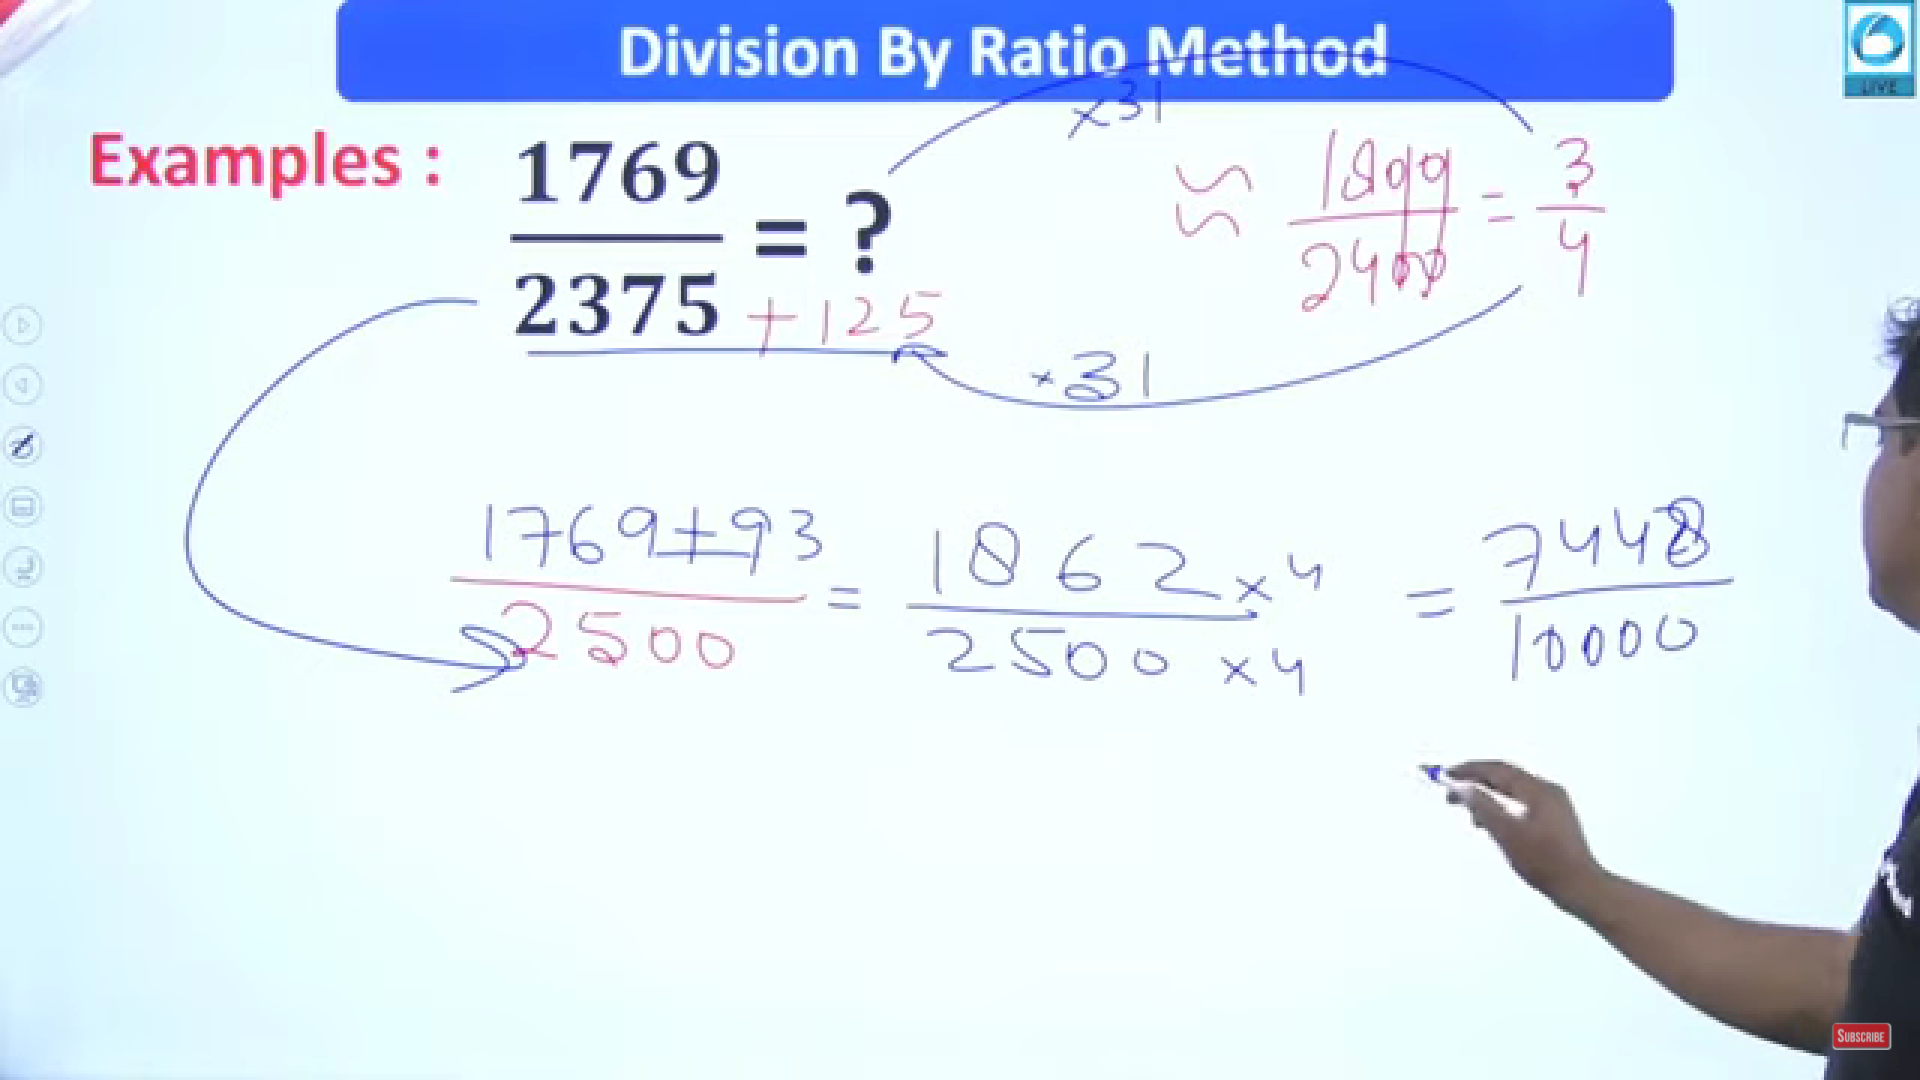 Division By Ratio Method
LIVE
×31
Examples : 1769/2375 = ?
≈ 1800/2400 = 3/4
+125
×31
1769+93/2500 = 1862×4/2500×4 = 7448/10000
SUBSCRIBE